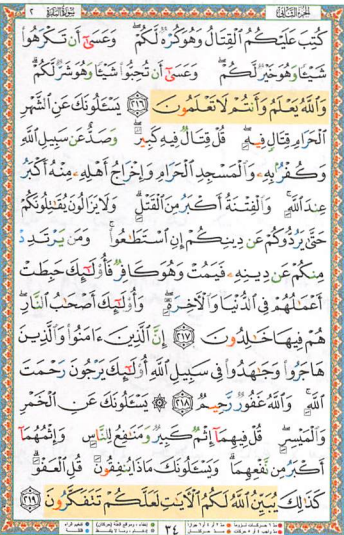 الجزء الثاني ٢ سورة البقرة
كُتِبَ عَلَيْكُمُ ٱلْقِتَالُ وَهُوَ كُرْهٌ لَّكُمْ ۖ وَعَسَىٰٓ أَن تَكْرَهُوا۟
شَيْـًٔا وَهُوَ خَيْرٌ لَّكُمْ ۖ وَعَسَىٰٓ أَن تُحِبُّوا۟ شَيْـًٔا وَهُوَ شَرٌّ لَّكُمْ ۗ
وَٱللَّهُ يَعْلَمُ وَأَنتُمْ لَا تَعْلَمُونَ ٢١٦ يَسْـَٔلُونَكَ عَنِ ٱلشَّهْرِ
ٱلْحَرَامِ قِتَالٍ فِيهِ ۖ قُلْ قِتَالٌ فِيهِ كَبِيرٌ ۖ وَصَدٌّ عَن سَبِيلِ ٱللَّهِ
وَكُفْرٌۢ بِهِۦ وَٱلْمَسْجِدِ ٱلْحَرَامِ وَإِخْرَاجُ أَهْلِهِۦ مِنْهُ أَكْبَرُ
عِندَ ٱللَّهِ ۚ وَٱلْفِتْنَةُ أَكْبَرُ مِنَ ٱلْقَتْلِ ۗ وَلَا يَزَالُونَ يُقَـٰتِلُونَكُمْ
حَتَّىٰ يَرُدُّوكُمْ عَن دِينِكُمْ إِنِ ٱسْتَطَـٰعُوا۟ ۚ وَمَن يَرْتَدِدْ
مِنكُمْ عَن دِينِهِۦ فَيَمُتْ وَهُوَ كَافِرٌ فَأُو۟لَـٰٓئِكَ حَبِطَتْ
أَعْمَـٰلُهُمْ فِى ٱلدُّنْيَا وَٱلْـَٔاخِرَةِ ۖ وَأُو۟لَـٰٓئِكَ أَصْحَـٰبُ ٱلنَّارِ ۖ
هُمْ فِيهَا خَـٰلِدُونَ ٢١٧ إِنَّ ٱلَّذِينَ ءَامَنُوا۟ وَٱلَّذِينَ
هَاجَرُوا۟ وَجَـٰهَدُوا۟ فِى سَبِيلِ ٱللَّهِ أُو۟لَـٰٓئِكَ يَرْجُونَ رَحْمَتَ
ٱللَّهِ ۚ وَٱللَّهُ غَفُورٌ رَّحِيمٌ ٢١٨ ۞ يَسْـَٔلُونَكَ عَنِ ٱلْخَمْرِ
وَٱلْمَيْسِرِ ۖ قُلْ فِيهِمَآ إِثْمٌ كَبِيرٌ وَمَنَـٰفِعُ لِلنَّاسِ وَإِثْمُهُمَآ
أَكْبَرُ مِن نَّفْعِهِمَا ۗ وَيَسْـَٔلُونَكَ مَاذَا يُنفِقُونَ قُلِ ٱلْعَفْوَ ۗ
كَذَٰلِكَ يُبَيِّنُ ٱللَّهُ لَكُمُ ٱلْـَٔايَـٰتِ لَعَلَّكُمْ تَتَفَكَّرُونَ ٢١٩
٣٤